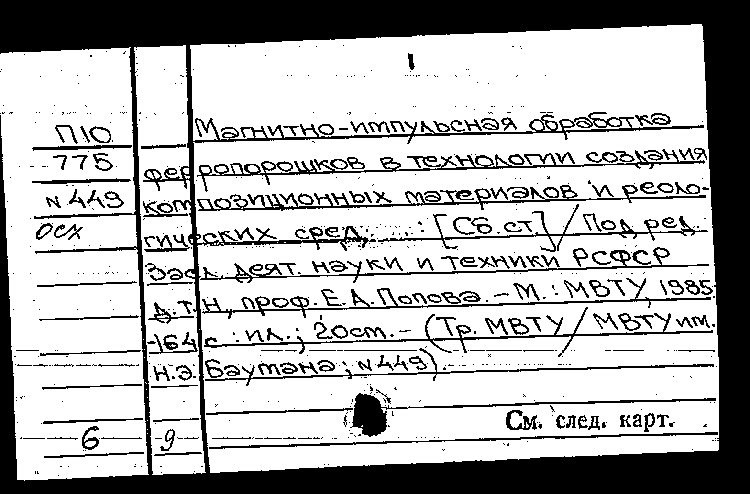 I
П10 Магнитно-импульсная обработка
775 ферропорошков в технологии создания
N 449 композиционных материалов и реоло-
осх гических сред. ...: [Сб. ст.] / Под ред.
Засл. деят. науки и техники РСФСР
д.т.н, проф. Е.А.Попова. - М.: МВТУ, 1985
-164 с.: ил.; 20см. - (Тр. МВТУ / МВТУ им.
Н.Э. Баумана; N449).
См. след. карт.
6 9